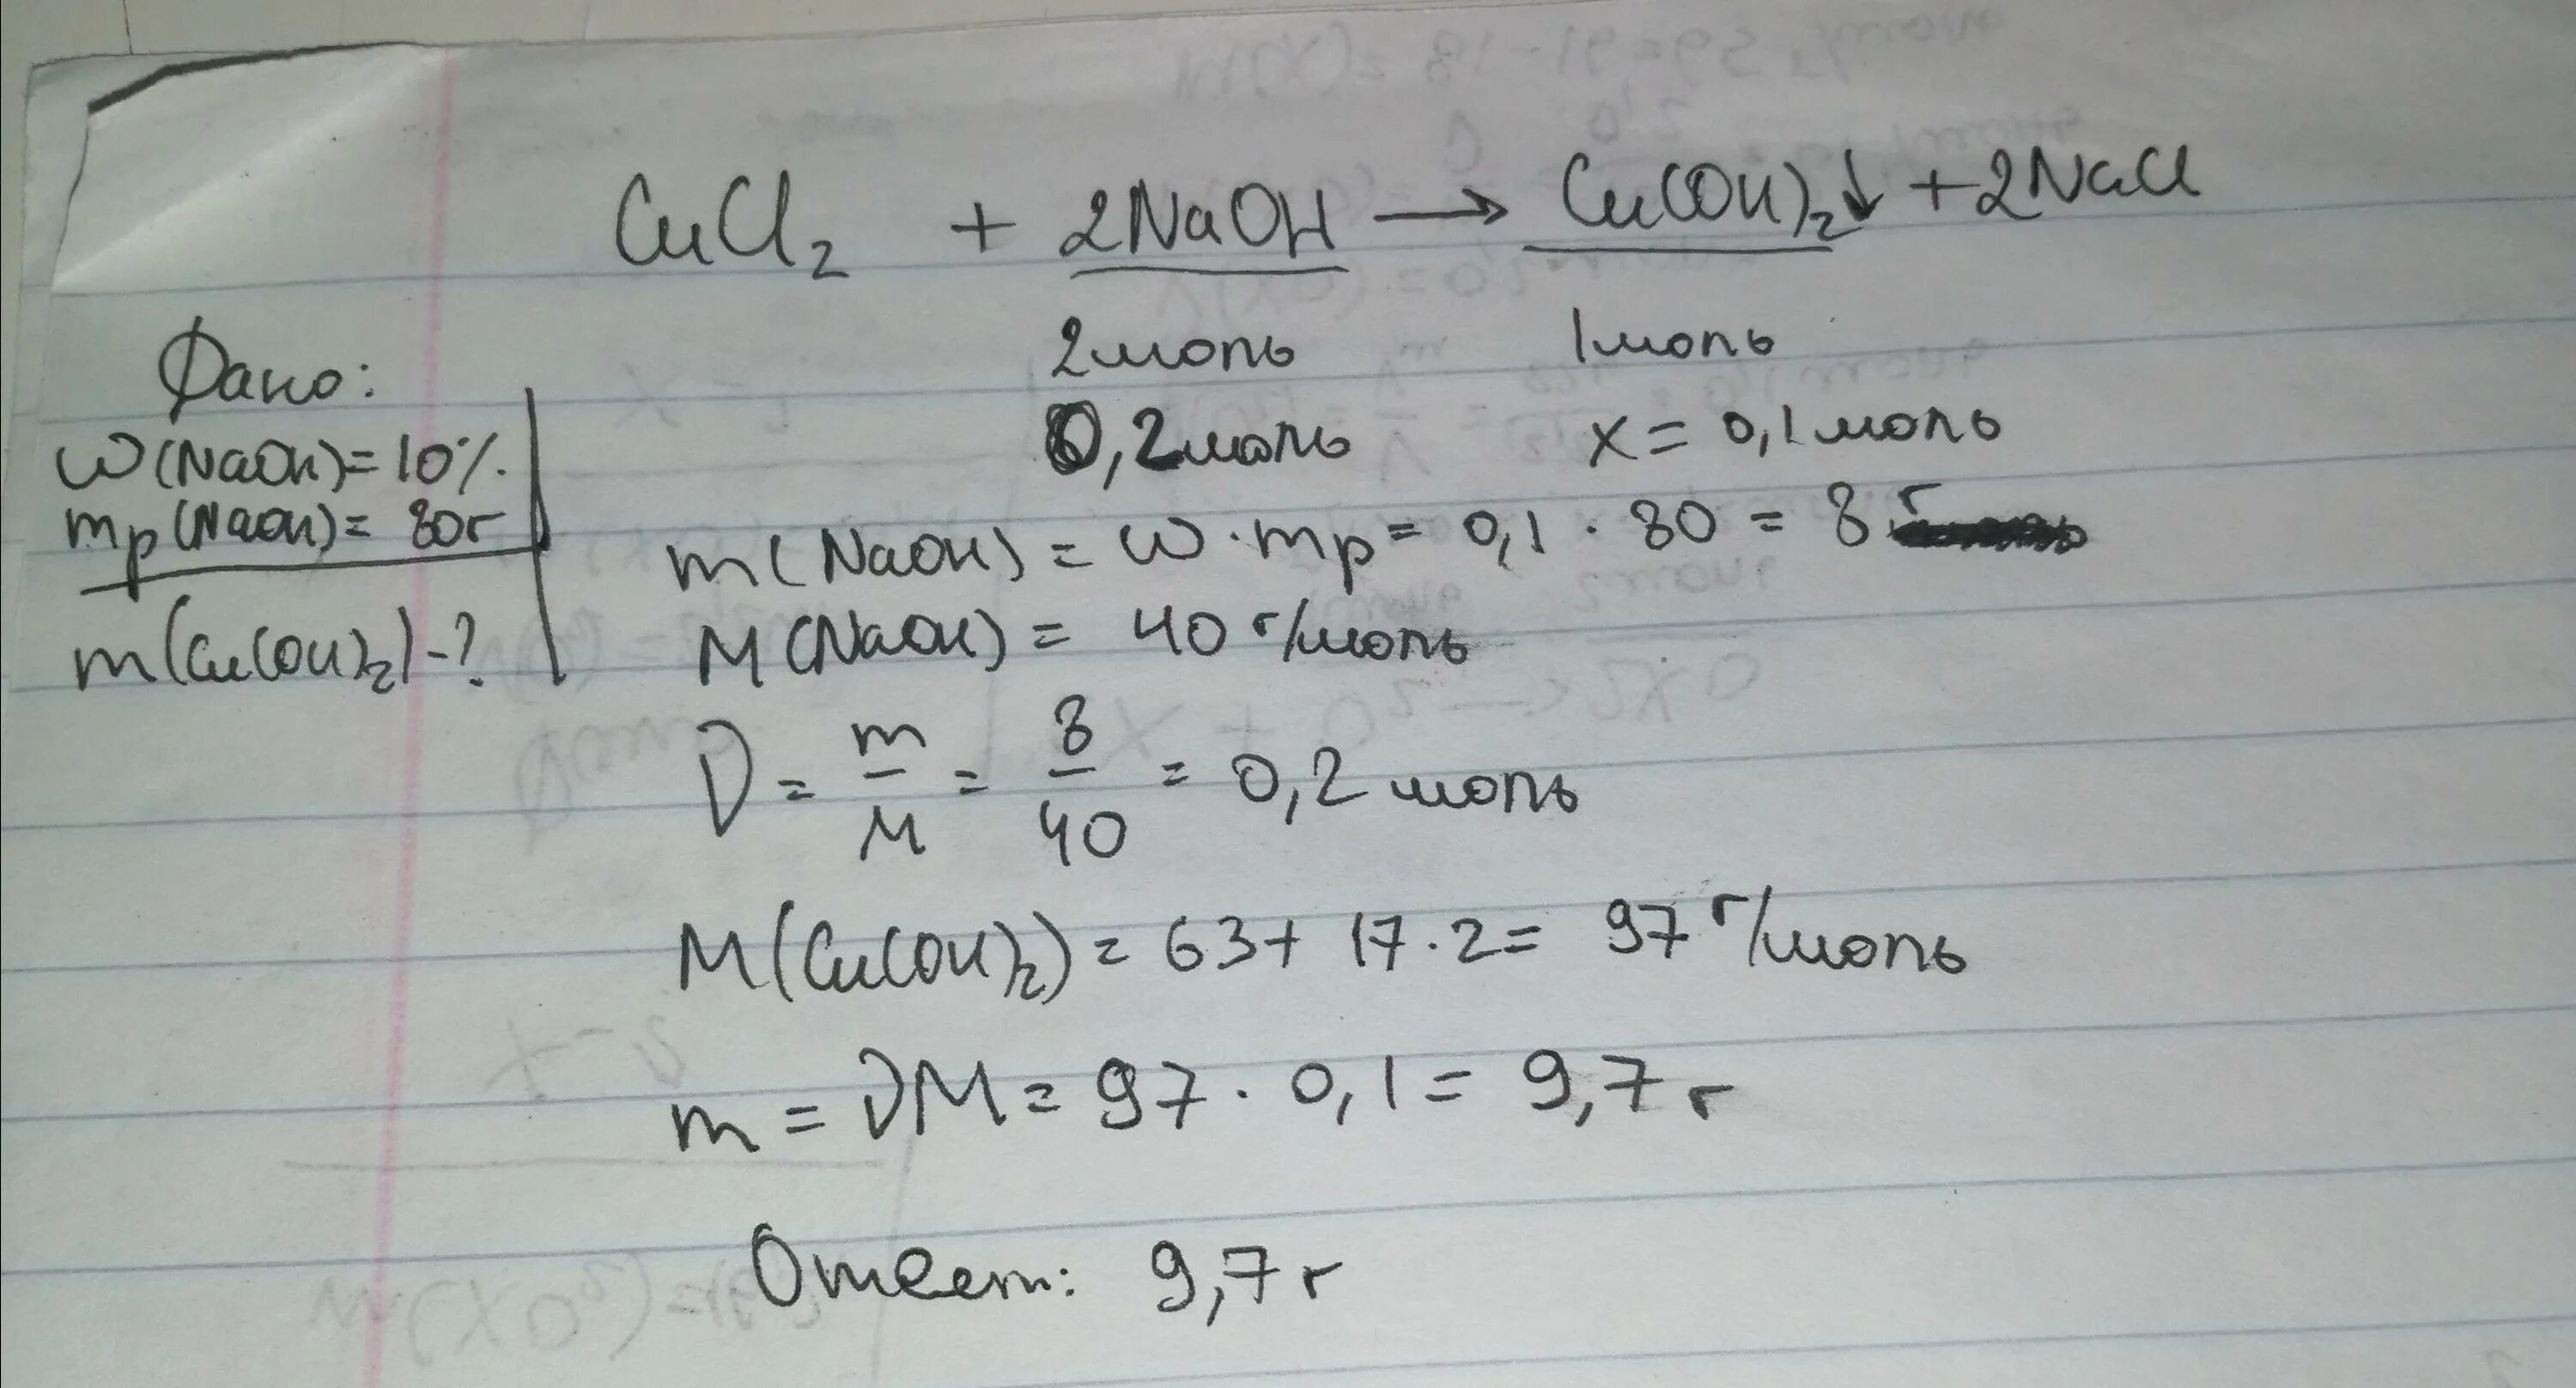 CuCl₂ + 2NaOH → Cu(OH)₂↓ + 2NaCl
2моль 1моль
0,2моль x = 0,1моль
Дано:
ω(NaOH)=10%
mр(NaOH)= 80г
m(Cu(OH)₂)-?
m(NaOH) = ω·mр= 0,1 · 80 = 8 г
M(NaOH) = 40 г/моль
ν = m/M = 8/40 = 0,2 моль
M(Cu(OH)₂) = 63+ 17·2= 97 г/моль
m = νM = 97 · 0,1 = 9,7 г
Ответ: 9,7 г